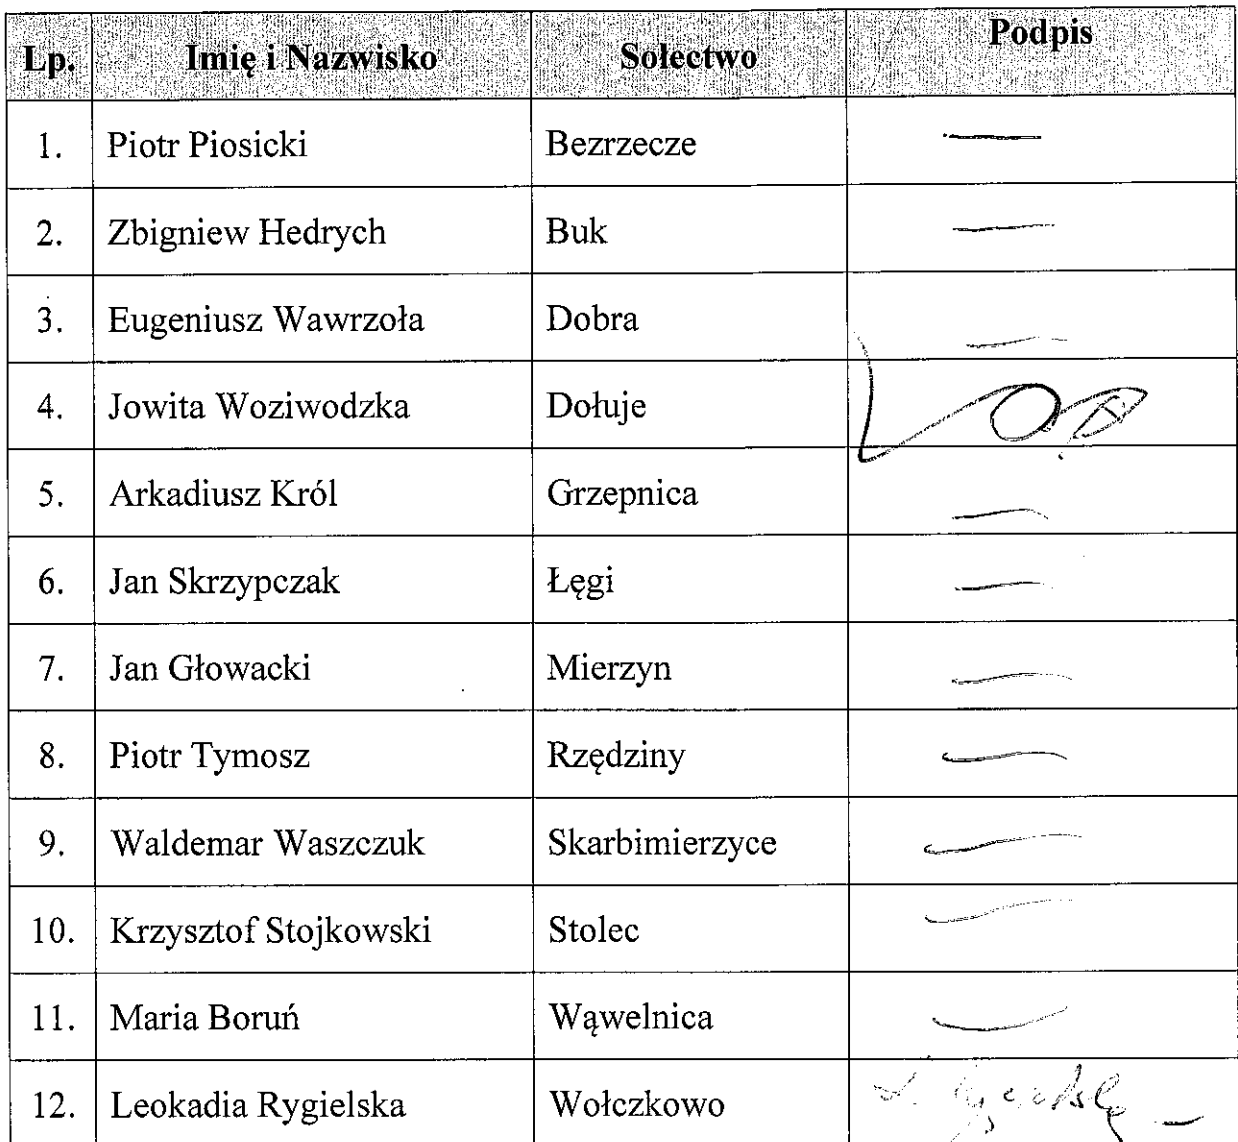 Lp. Imię i Nazwisko Sołectwo Podpis
1. Piotr Piosicki Bezrzecze —
2. Zbigniew Hedrych Buk —
3. Eugeniusz Wawrzoła Dobra —
4. Jowita Woziwodzka Dołuje
5. Arkadiusz Król Grzepnica —
6. Jan Skrzypczak Łęgi —
7. Jan Głowacki Mierzyn —
8. Piotr Tymosz Rzędziny —
9. Waldemar Waszczuk Skarbimierzyce —
10. Krzysztof Stojkowski Stolec —
11. Maria Boruń Wąwelnica —
12. Leokadia Rygielska Wołczkowo